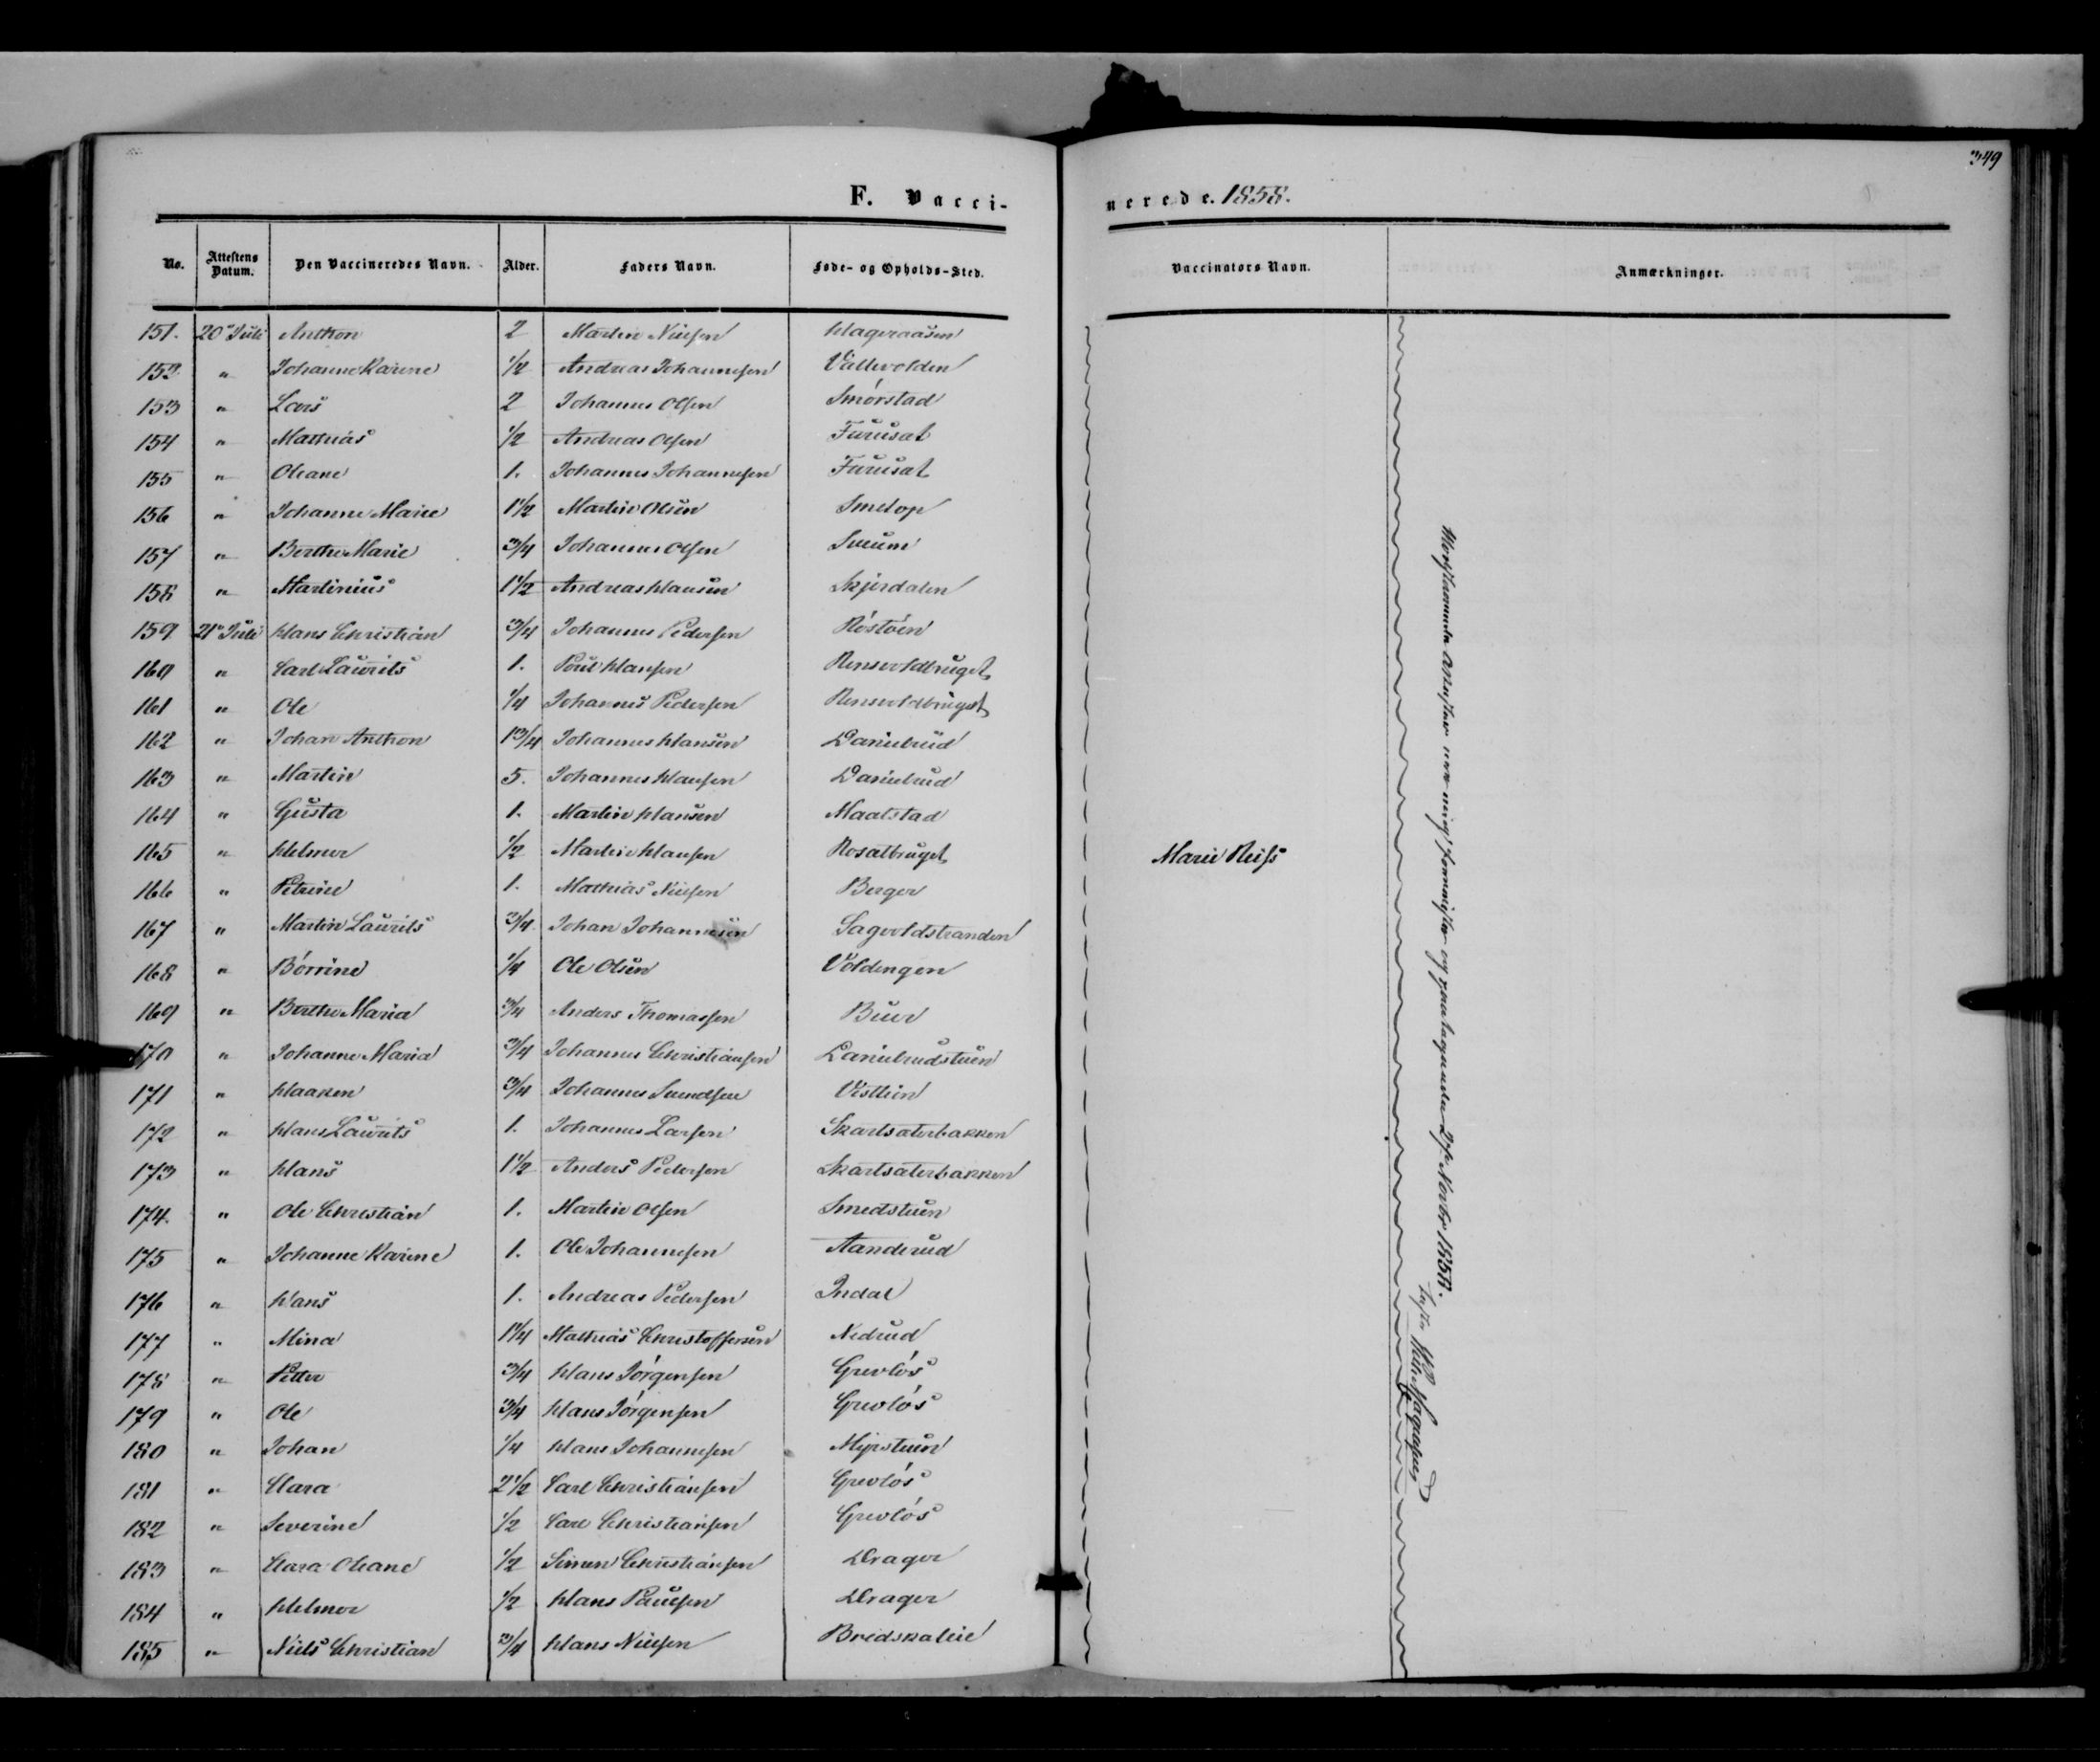 349
F. Vaccinerede. 1858.
No. Attestens Datum. Den Vaccineredes Navn. Alder. Faders Navn. Føde- og Opholds-Sted. Vaccinators Navn. Anmærkninger.
151. 20de Juli Anthon 2 Martin Nielsen Hageraasen
152 " Johanne Karine 1/2 Andreas Johannesen Vällevolden
153 " Lars 2 Johannes Olsen Smörstad
154 " Mathias 1/2 Andreas Olsen Furusat
155 " Oleane 1. Johannes Johannesen Furusat
156 " Johanne Marie 1 1/2 Martin Olsen Smelop
157 " Berthe Marie 3/4 Johannes Olsen Sveum
158 " Martinius 1 1/2 Andreas Hansen Skjerdalen
159 21de Juli Hans Christian 3/4 Johannes Pedersen Röstöen
160 " Carl Laurits 1. Poul Hansen Rensvoldbruget
161 " Ole 1/4 Johannes Pedersen Rensvoldbruget
162 " Johan Anthon 1 3/4 Johannes Hansen Danielrud
163 " Martin 5. Johannes Hansen Danielrud
164 " Gusta 1. Martin Hansen Maalstad
165 " Helmer 1/2 Martin Hansen Rosalbruget Marie Reiss
166 " Petrine 1. Mathias Nielsen Berger
167 " Martin Laurits 3/4 Johan Johannesen Sagvoldstranden
168 " Börrine 1/4 Ole Olsen Voldengen
169 " Berthe Maria 3/4 Anders Thomassen Buer
170 " Johanne Maria 3/4 Johannes Christiansen Danielrudstuen
171 " Haaken 3/4 Johannes Svendsen Vestlien
172 " Hans Laurits 1. Johannes Larsen Skartsaterbakken
173 " Hans 1 1/2 Anders Pedersen Skartsaterbakken
174. " Ole Christian 1. Martin Olsen Smedstuen
175 " Johanne Karine 1. Ole Johannesen Aanderud
176 " Hans 1. Andreas Pedersen Indal
177 " Mina 1 1/4 Mathias Christoffersen Nedrud
178 " Petter 3/4 Hans Jörgensen Grevlös
179 " Ole 3/4 Hans Jörgensen Grevlös
180 " Johan 1/4 Hans Johannesen Myrstuen
181 " Clara 2 1/2 Carl Christiansen Grevlös
182 " Severine 1/2 Carl Christiansen Grevlös
183 " Clara Oleane 1/2 Simen Christiansen Drager
184 " Helmer 1/2 Hans Paulsen Drager
185 " Niels Christian 3/4 Hans Nielsen Bredskaleie
og Novbr 1858.